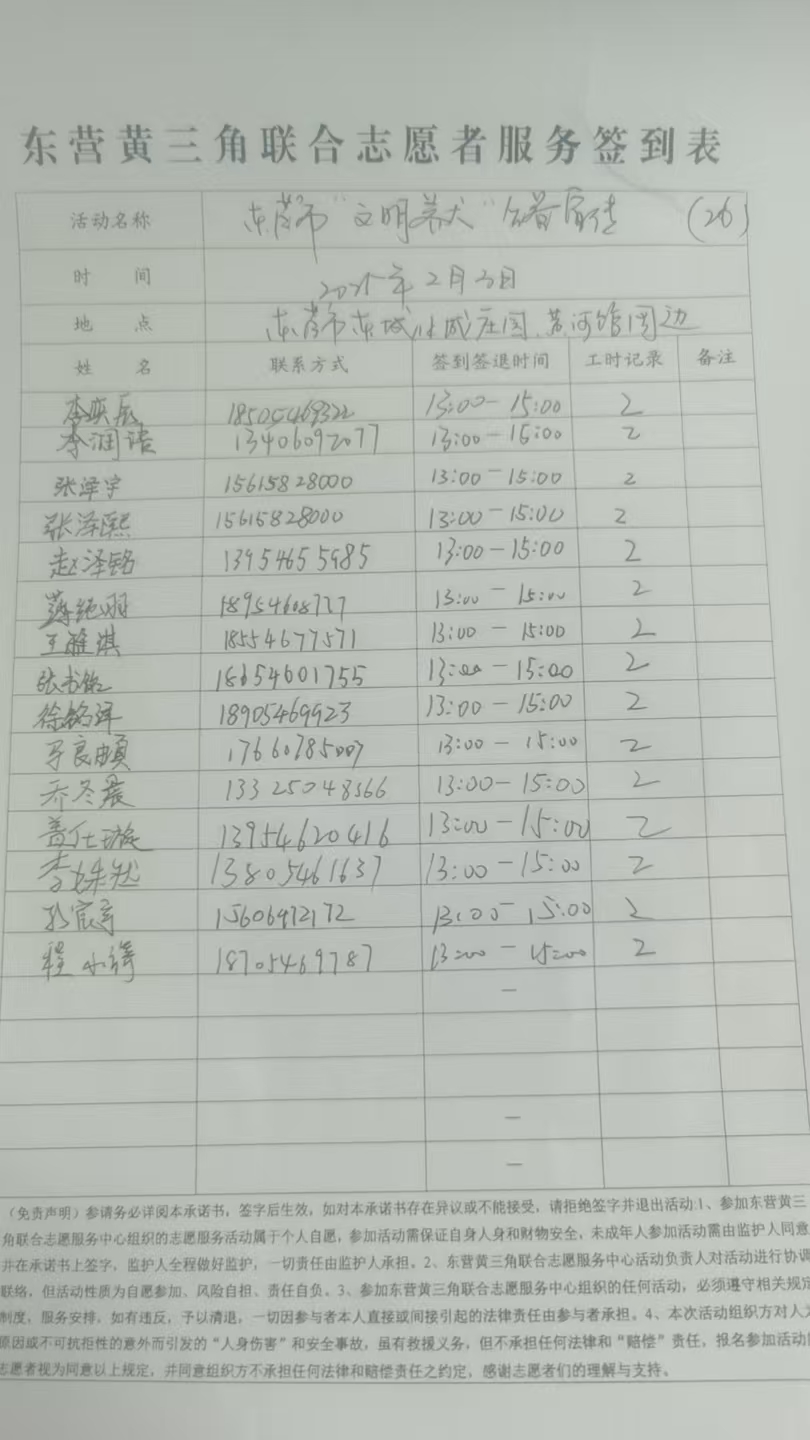 东营黄三角联合志愿者服务签到表
活动名称 东营市“文明养犬”公益宣传 (26)
时 间 2025年2月3日
地 点 东营市东城 庄园、黄河馆周边
姓 名 联系方式 签到签退时间 工时记录 备注
李奕辰 18505469322 13:00-15:00 2
李润诺 13406092077 13:00-15:00 2
张泽宇 15615828000 13:00-15:00 2
张泽熙 15615828000 13:00-15:00 2
赵泽铭 13954655985 13:00-15:00 2
薛纯羽 18954608727 13:00-15:00 2
王雅淇 18554677571 13:00-15:00 2
张书铭 18654601755 13:00-15:00 2
徐铭泽 18905469923 13:00-15:00 2
于良頔 17660785007 13:00-15:00 2
乔冬晨 13325048566 13:00-15:00 2
盖仕璇 13954620416 13:00-15:00 2
李姝然 13805461637 13:00-15:00 2
15606972172 13:00-15:00 2
程 18705469787 13:00-15:00 2
—
—
—
（免责声明）参请务必详阅本承诺书，签字后生效，如对本承诺书存在异议或不能接受，请拒绝签字并退出活动:1、参加东营黄三
角联合志愿服务中心组织的志愿服务活动属于个人自愿，参加活动需保证自身人身和财物安全，未成年人参加活动需由监护人同意
并在承诺书上签字，监护人全程做好监护，一切责任由监护人承担。2、东营黄三角联合志愿服务中心活动负责人对活动进行协调
联络，但活动性质为自愿参加、风险自担、责任自负。3、参加东营黄三角联合志愿服务中心组织的任何活动，必须遵守相关规定
制度，服务安排，如有违反，予以清退，一切因参与者本人直接或间接引起的法律责任由参与者承担。4、本次活动组织方对人为
原因或不可抗拒性的意外而引发的“人身伤害”和安全事故，虽有救援义务，但不承担任何法律和“赔偿”责任，报名参加活动
志愿者视为同意以上规定，并同意组织方不承担任何法律和赔偿责任之约定，感谢志愿者们的理解与支持。